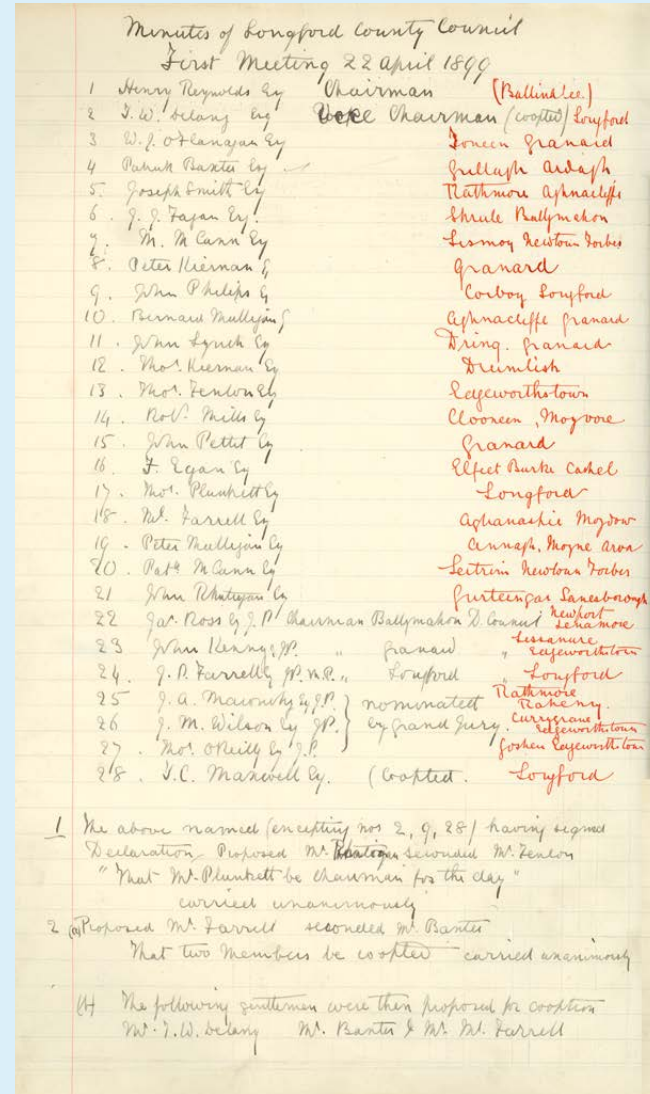 Minutes of Longford County Council
First Meeting 22 April 1899
1 Henry Reynolds Esq Chairman (Ballinalee.)
2 T.W. Delany Esq Vice Chairman (coopted) Longford
3 W. J. O'Flanagan Esq Toneen Granard
4 Patrick Baxter Esq Grillagh Ardagh
5. Joseph Smith Esq Rathmore Aghnacliffe
6. J. J. Fagan Esq. Shrule Ballymahon
7. M. McCann Esq Lismoy Newtown Forbes
8. Peter Kiernan Granard
9. John Philips Corboy Longford
10. Bernard Mulligan Aghnacliffe Granard
11. John Lynch Esq Dring. Granard
12. Thos. Kiernan Esq Drumlish
13. Thos. Fenlon Esq Edgeworthstown
14. Robt. Mills Esq Clooneen, Moyvore
15. John Pettit Esq Granard
16. F. Egan Esq Elfeet Burke Cashel
17. Thos. Plunkett Esq Longford
18. Ml. Farrell Esq Aghanashie Moydow
19. Peter Mulligan Esq Annagh, Moyne Arva
20. Patk McCann Esq Leitrim Newtown Forbes
21 John Rhatigan Esq Lanesborough
22 Jas. Ross Esq J.P Chairman Ballymahon D. Council Newport Lenamore
23 John Kenny J.P. " Granard " Lissanure Edgeworthstown
24. J. P. Farrell J.P. M.P. " Longford " Longford
25 J. A. Esq J.P. } nominated Rathmore Raheny.
26 J. M. Wilson Esq J.P. } by Grand Jury. Currygrane Edgeworthstown
27. Thos. O'Reilly Esq J.P. Goshen Edgeworthstown
28. T.C. Maxwell Esq. (Coopted. Longford
1 The above named (excepting nos 2, 9, 28) having signed
Declaration Proposed Mr. Rhatigan seconded Mr. Fenlon
"That Mr. Plunkett be chairman for the day"
carried unanimously
2 (a) Proposed Mr. Farrell seconded Mr. Baxter
That two Members be coopted carried unanimously
(b) The following gentlemen were then proposed for cooption
Mr. T.W. Delany Mr. Baxter & Mr. Ml. Farrell